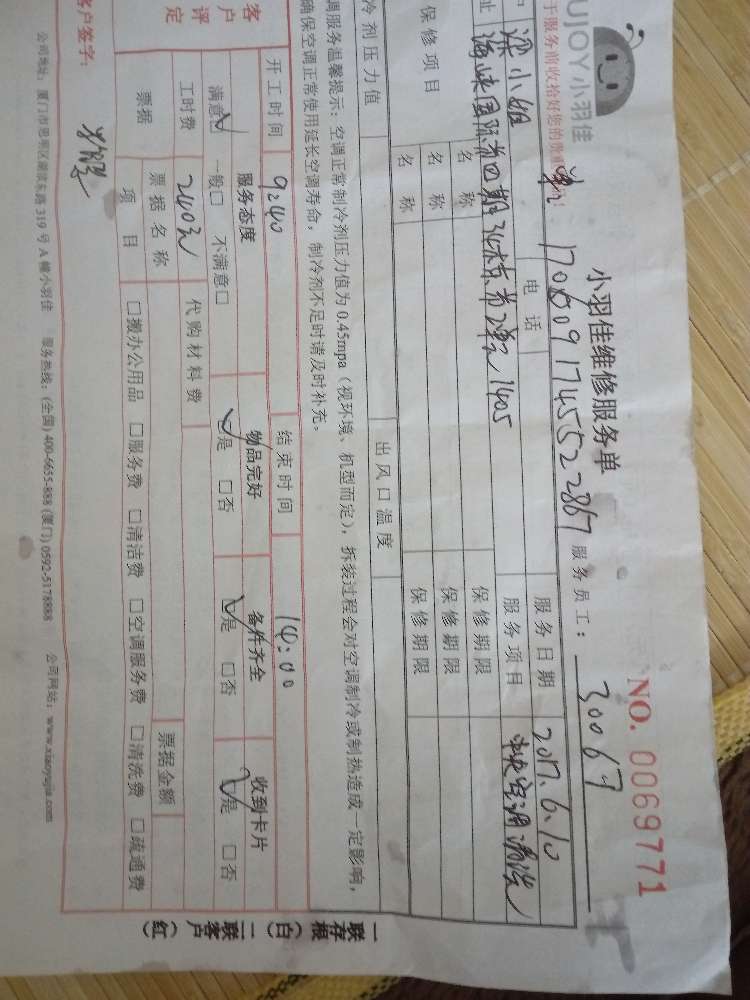 UJOY小羽佳
小羽佳维修服务单
NO. 0069771
于服务前收拾好您的贵重
单 17060917455522867 服务员工: 30067
梁小姐 电话 服务日期 2017.6.10
址 海峡国际第四期 2单元1405 服务项目 中央空调清洗
保修项目 名称 保修期限
名称 保修期限
名称 保修期限
冷剂压力值 出风口温度
调服务温馨提示:空调正常制冷剂压力值为0.45mpa(视环境、机型而定),拆装过程会对空调制冷或制热造成一定影响,
确保空调正常使用延长空调寿命,制冷剂不足时请及时补充。
开工时间 9:40 结束时间 14:00
客户评定 服务态度 物品完好 备件齐全 收到卡片
满意☑ 一般□ 不满意□ ☑是 □否 ☑是 □否 ☑是 □否
工时费 240元 代购材料费
票据 票据名称 票据金额
项目 □搬办公用品 □服务费 □清洁费 □空调服务费 □清洗费 □疏通费
客户签字:
公司地址:厦门市思明区湖滨东路319号A幢小羽佳 服务热线:(全国)400-6655-888 (厦门)0592-5178888 公司网站:www.xiaoyujia.com
一联存根(白)二联客户(红)